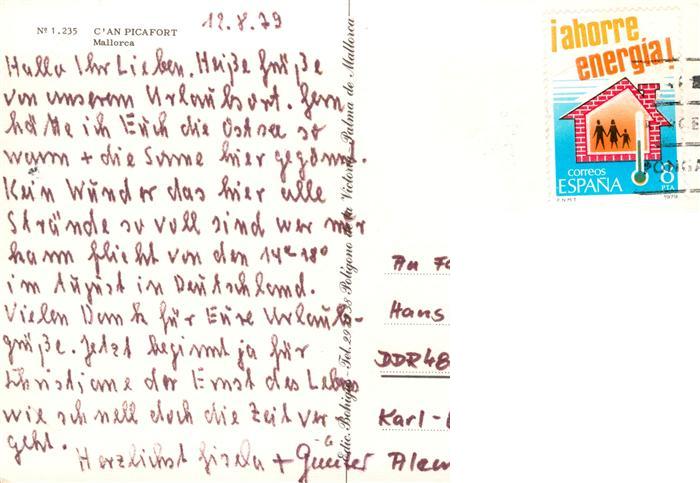 12.8.79
Nº 1.235 C'AN PICAFORT
Mallorca
Hallo Ihr Lieben. Heiße Grüße
von unserem Urlaubsort. Gern
hätte ich Euch die Ostsee so
warm + die Sonne hier gegönnt.
Kein Wunder das hier alle
Strände so voll sind wer nur
kann flieht von den 14°-18°
im August in Deutschland.
Vielen Dank für Eure Urlaub-
grüße. Jetzt beginnt ja für
Christiane der Ernst des Lebens
wie schnell doch die Zeit ver
geht.
Herzlichst Gisela + Günter
Edic. Bohigas - Tel. 29 Polígono de la Victoria - Palma de Mallorca
¡ahorre
energía!
correos
ESPAÑA
8
PTA
F.N.M.T.
1979
An Fa
Hans
DDR 48
Karl-
Alem